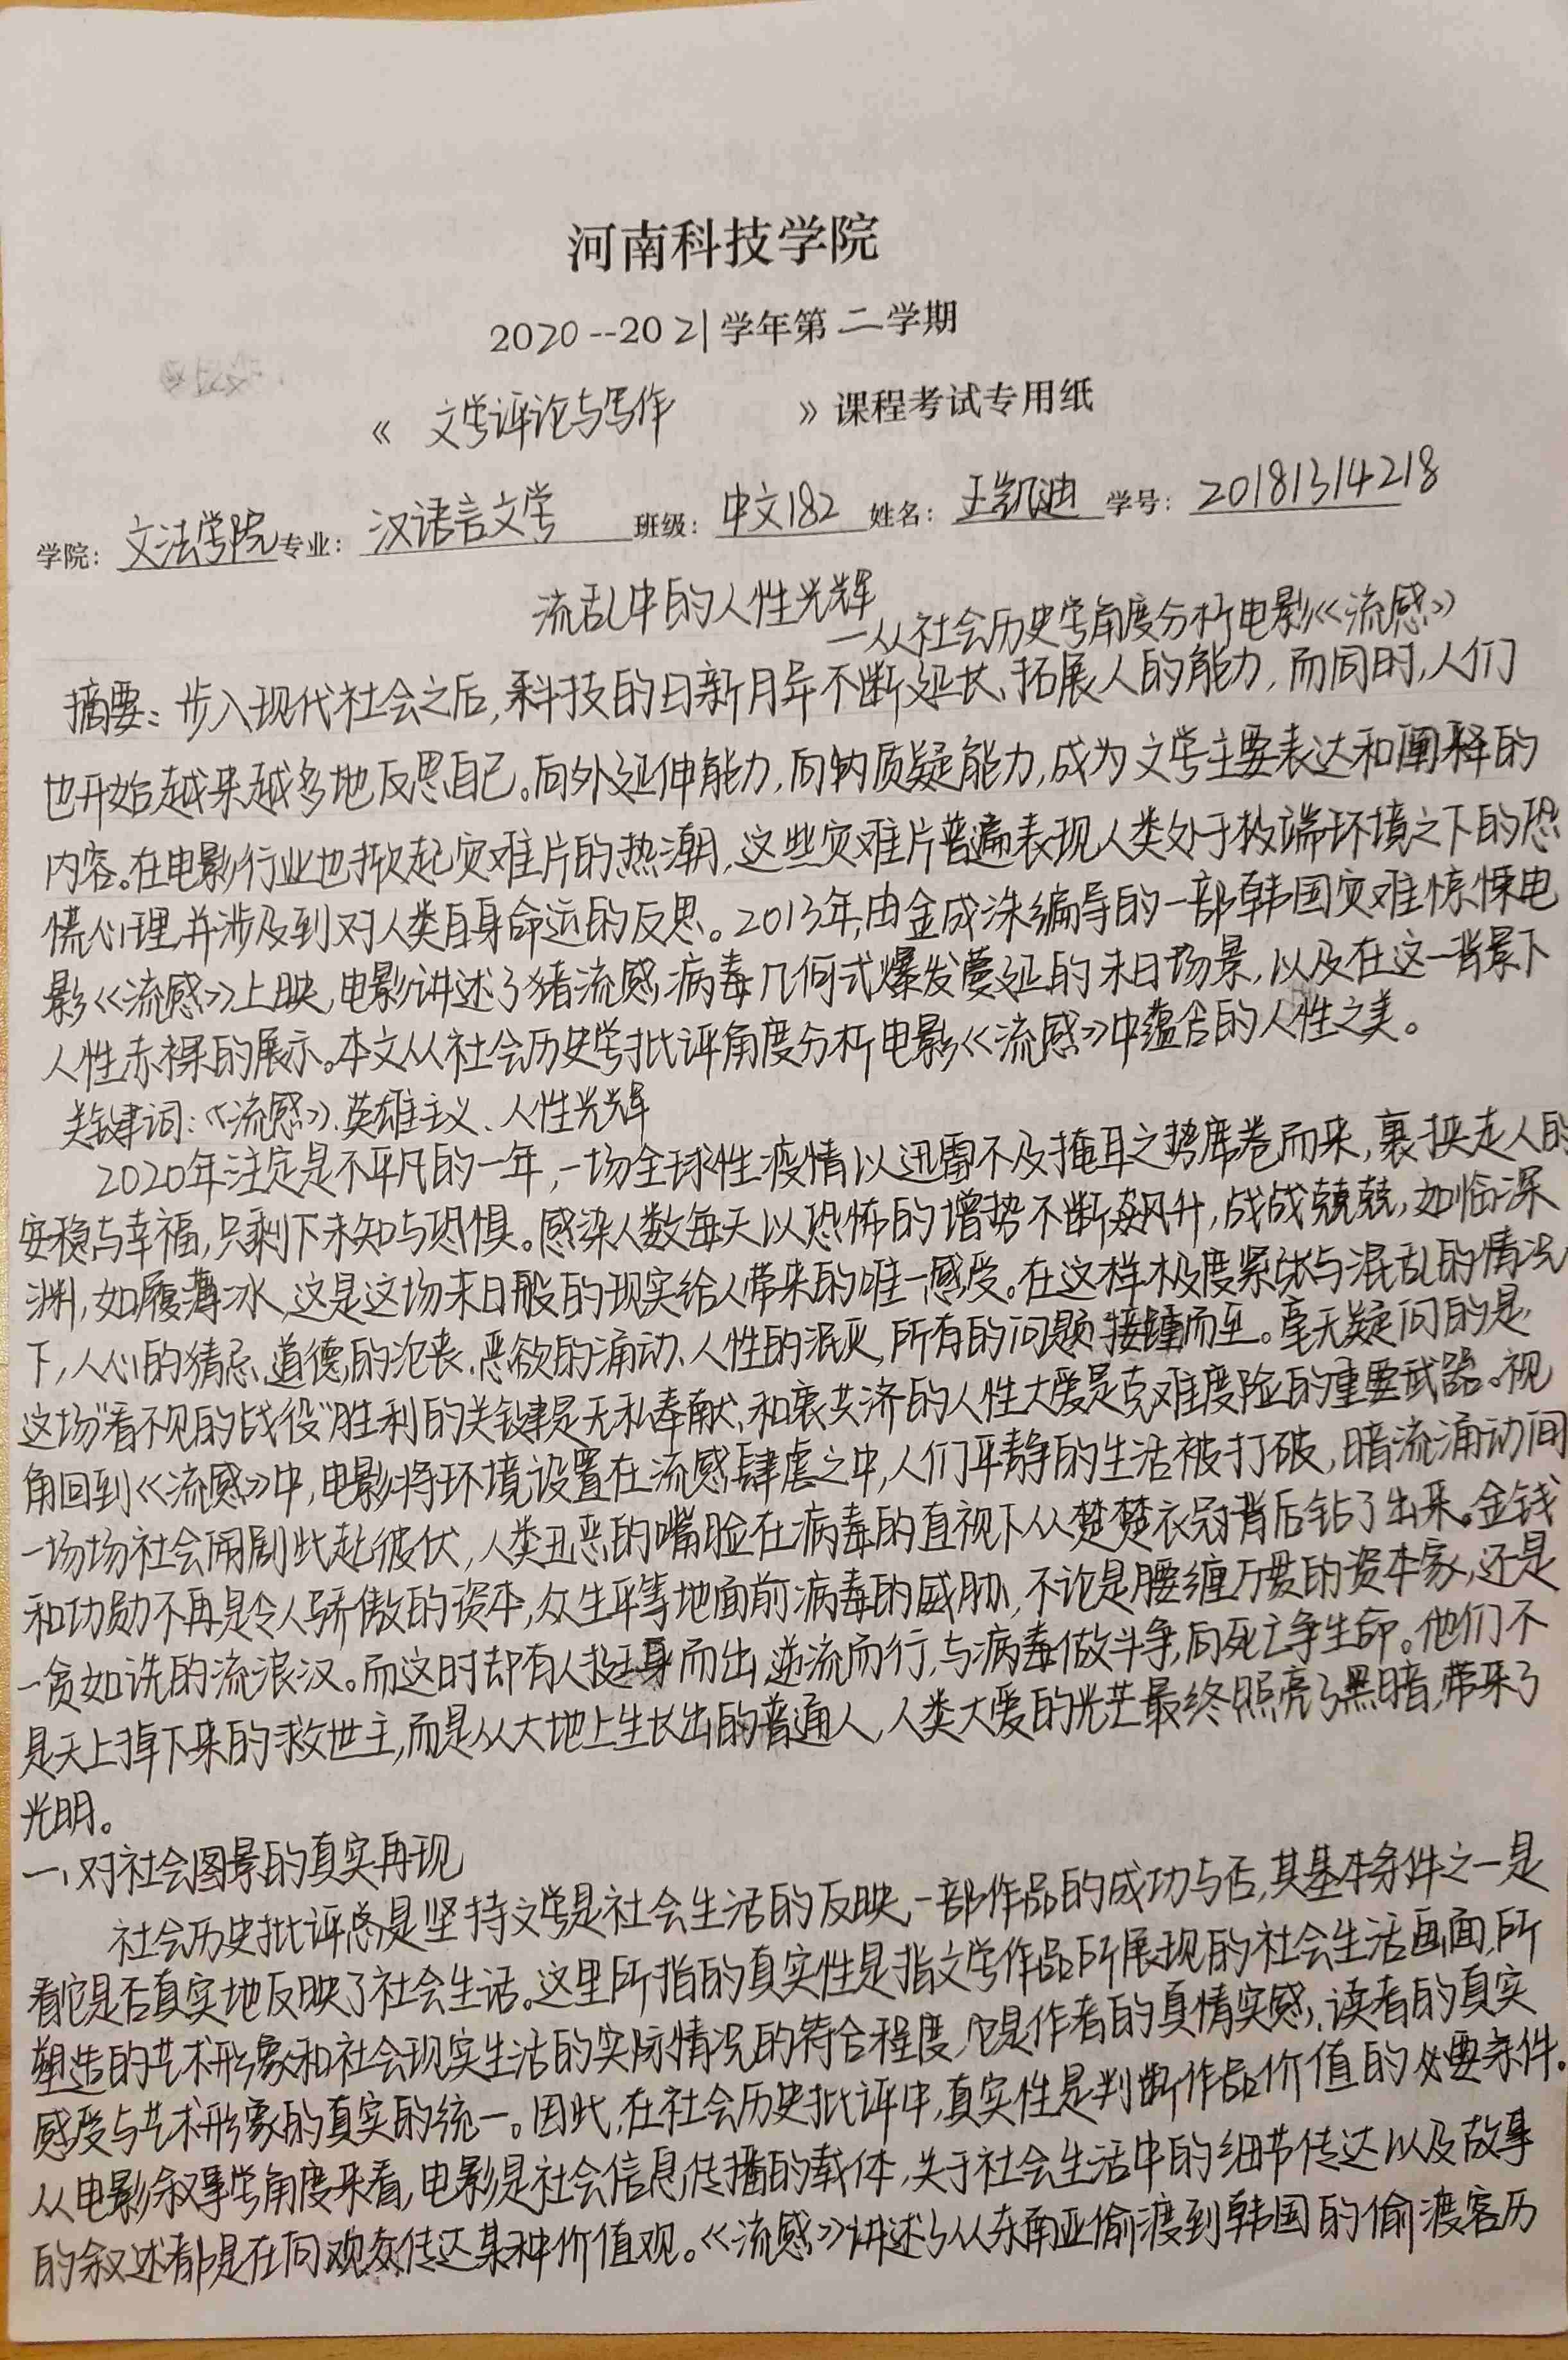 河南科技学院
2020--2021学年第二学期
《 文学评论与写作 》课程考试专用纸
学院：文法学院专业：汉语言文学 班级：中文182 姓名：王凯迪 学号：20181314218
流乱中的人性光辉
—从社会历史学角度分析电影《流感》
摘要：步入现代社会之后,科技的日新月异不断延长、拓展人的能力,而同时,人们
也开始越来越多地反思自己。向外延伸能力,向内质疑能力,成为文学主要表达和阐释的
内容。在电影行业也掀起灾难片的热潮,这些灾难片普遍表现人类处于极端环境之下的恐
慌心理,并涉及到对人类自身命运的反思。2013年,由金成洙编导的一部韩国灾难惊悚电
影《流感》上映,电影讲述了猪流感病毒几何式爆发蔓延的末日场景,以及在这一背景下
人性赤裸的展示。本文从社会历史学批评角度分析电影《流感》中蕴含的人性之美。
关键词：《流感》、英雄主义、人性光辉
2020年注定是不平凡的一年,一场全球性疫情以迅雷不及掩耳之势席卷而来,裹挟走人的
安稳与幸福,只剩下未知与恐惧。感染人数每天以恐怖的增势不断飙升,战战兢兢,如临深
渊,如履薄冰,这是这场末日般的现实给人带来的唯一感受。在这样极度紧张与混乱的情况
下,人心的猜忌、道德的沦丧、恶欲的涌动、人性的泯灭,所有的问题接踵而至。毫无疑问的是,
这场“看不见的战役”胜利的关键是无私奉献、和衷共济的人性大爱是克难度险的重要武器。视
角回到《流感》中,电影将环境设置在流感肆虐之中,人们平静的生活被打破,暗流涌动间
一场场社会闹剧此起彼伏,人类丑恶的嘴脸在病毒的直视下从楚楚衣冠背后钻了出来。金钱
和功勋不再是令人骄傲的资本,众生平等地面前病毒的威胁,不论是腰缠万贯的资本家,还是
一贫如洗的流浪汉。而这时却有人挺身而出,逆流而行,与病毒做斗争,向死亡争生命。他们不
是天上掉下来的救世主,而是从大地上生长出的普通人,人类大爱的光芒最终照亮了黑暗,带来了
光明。
一、对社会图景的真实再现
社会历史批评总是坚持文学是社会生活的反映,一部作品的成功与否,其基本条件之一是
看它是否真实地反映了社会生活。这里所指的真实性是指文学作品所展现的社会生活画面,所
塑造的艺术形象和社会现实生活的实际情况的符合程度,它是作者的真情实感、读者的真实
感受与艺术形象的真实的统一。因此,在社会历史批评中,真实性是判断作品价值的必要条件。
从电影叙事学角度来看,电影是社会信息传播的载体,关于社会生活中的细节传达以及故事
的叙述都是在向观众传达某种价值观。《流感》讲述了从东南亚偷渡到韩国的偷渡客历